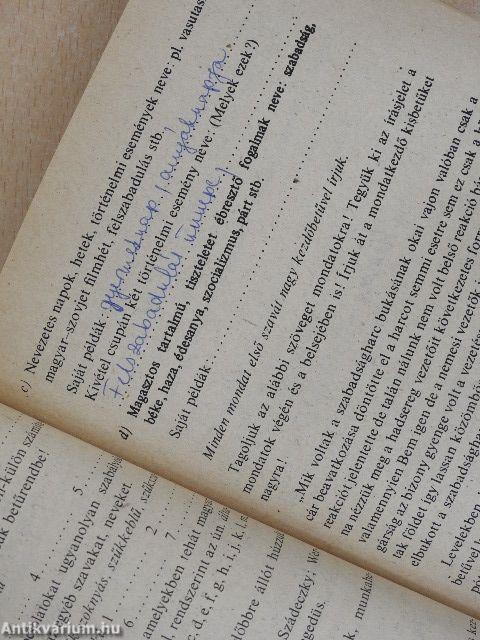 c) Nevezetes napok, hetek, történelmi események neve: pl. vasutas
magyar-szovjet filmhét, felszabadulás stb.
Saját példák: gyermeknap, anyáknapja
Kivétel csupán két történelmi esemény neve: (Melyek ezek?)
Felszabadulás ünnepe
d) Magasztos tartalmú, tiszteletet ébresztő fogalmak neve: szabadság,
béke, haza, édesanya, szocializmus, párt stb.
Saját példák
Minden mondat első szavát nagy kezdőbetűvel írjuk.
Tagoljuk az alábbi szöveget mondatokra! Tegyük ki az írásjelet a
mondatok végén és a belsejében is! Írjuk át a mondatkezdő kisbetűket
nagyra!
„Mik voltak a szabadságharc bukásának okai vajon valóban csak a
cár beavatkozása döntötte el a harcot semmi esetre sem ez csak a
reakciót jelentette de talán nálunk nem volt belső reakció
na nézzük meg a hadsereg vezetőit következetes
valamennyien Bem igen de a nemesi vezetők
gárság az bizony gyenge volt a
tak földet így lassan
elbukott a
Levelekben
betűvel
-külön
ak betűrendbe!
5
4
ugyanolyan
gyéb szavakat, neveket.
szűkkeblű,
6 2
7
amelyekben tehát
rendszerint az ún.
c, d, e, f, g, h, j, k,
előbbre állót
Szádeczky:
munka
Antikvárium.hu